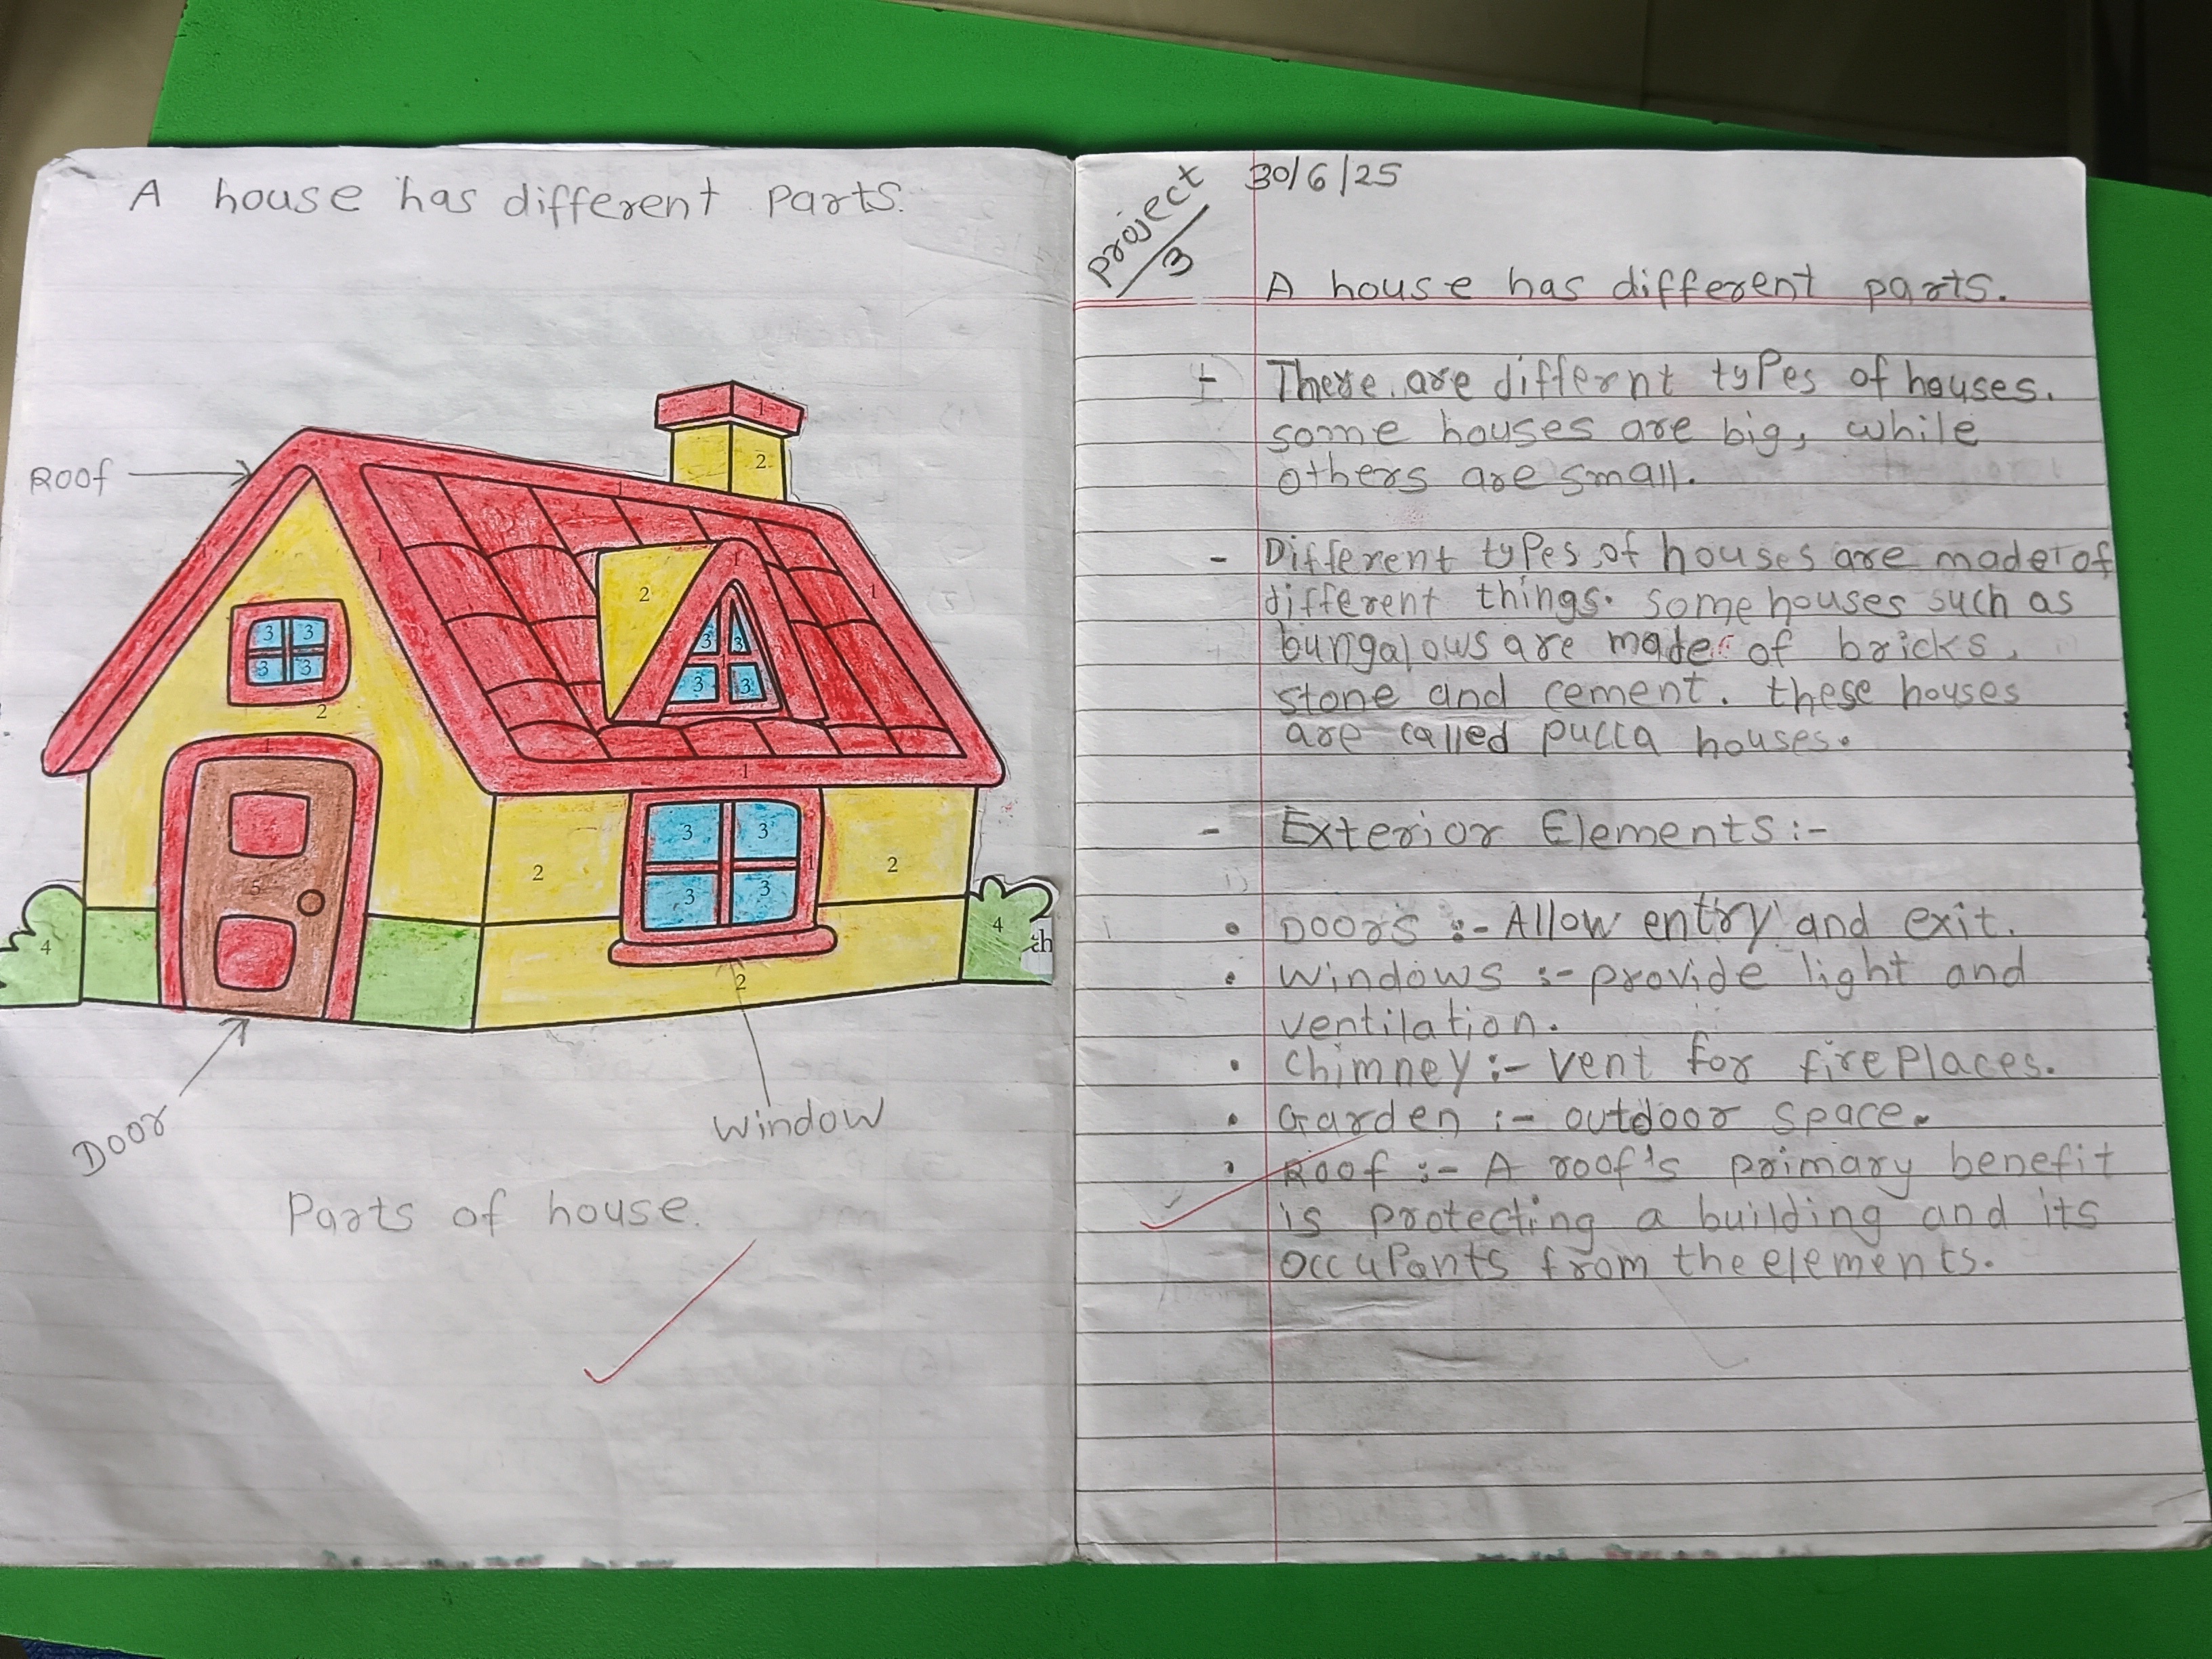 A house has different parts.
1
2
Roof
1
1
1
1
1
2
3 3
3 3
3 3
3 3
2
1
1
3 3
1 1
3 3
2
2
5
4
4
ch
2
Door
Window
Parts of house.
Project
3
30/6/25
A house has different parts.
- There are differnt types of houses.
some houses are big, while
others are small.
- Different types of houses are made of
different things. some houses such as
bungalows are made of bricks,
stone and cement. these houses
are called pucca houses.
- Exterior Elements :-
• Doors :- Allow entry and exit.
• Windows :- provide light and
ventilation.
• Chimney :- vent for fireplaces.
• Garden :- outdoor space.
• Roof :- A roof's primary benefit
is protecting a building and its
occupants from the elements.